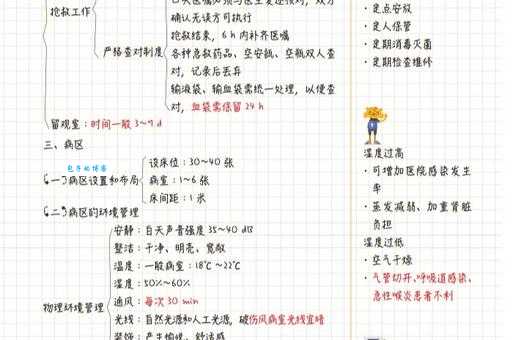 口头医嘱必须与医生复述核对，双方
抢救工作
确认无误方可执行
抢救结束，6 h 内补齐医嘱
严格查对制度
各种急救药品、空安瓿、空瓶双人查
对，记录后丢弃
输液袋、输血袋需统一处理，以便查
对，血袋需保留 24 h
留观室：时间一般 3~7 d
三、病区
包含的情景
(一)病区设置和布局
设床位：30~40 张
病室：1~6 张
床间距：1 米
(二)病区的环境管理
物理环境管理
安静：白天声音强度 35~40 dB
整洁：干净、明亮、宽敞
温度：一般病室：18℃~22℃
湿度：50%~60%
通风：每次 30 min
光线：自然光源和人工光源，破伤风病室光线宜暗
装饰：产生愉悦、舒适感
· 定点安放
· 定人保管
· 定期消毒灭菌
· 定期检查维修
湿度过高
· 可增加医院感染发生
率
· 蒸发减弱、加重肾脏
负担
湿度过低
· 空气干燥
· 气管切开、呼吸道感染、
急性喉炎患者不利